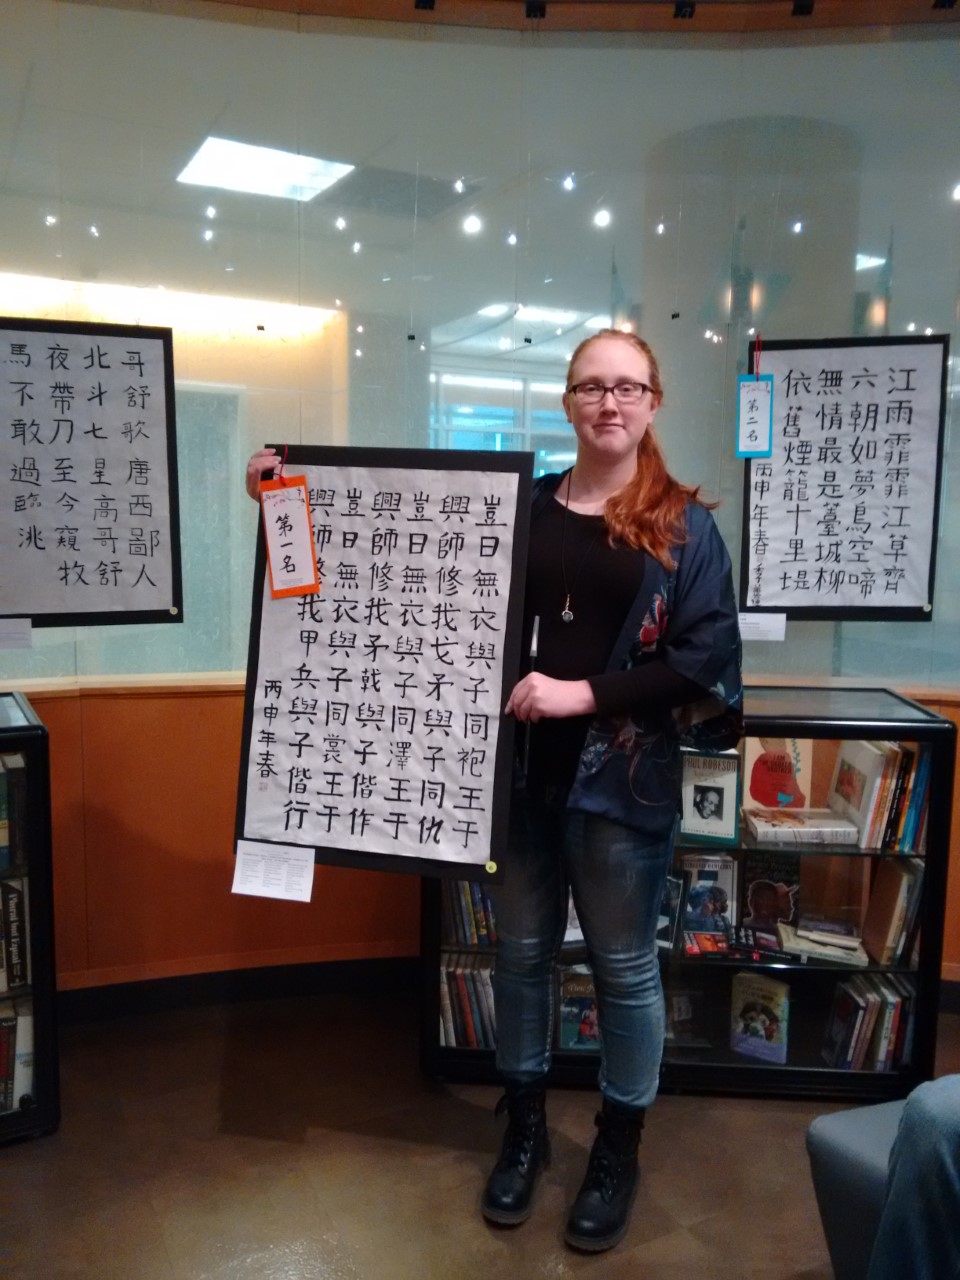 哥舒歌唐西鄙人
北斗七星高哥舒
夜帶刀至今窺牧
馬不敢過臨洮
第一名
豈曰無衣與子同袍王于
興師修我戈矛與子同仇
豈曰無衣與子同澤王于
興師修我矛戟與子偕作
豈曰無衣與子同裳王于
興師修我甲兵與子偕行
丙申年春
第二名
江雨霏霏江草齊
六朝如夢鳥空啼
無情最是臺城柳
依舊煙籠十里堤
丙申年春
PAUL ROBESON
Plural but Equal